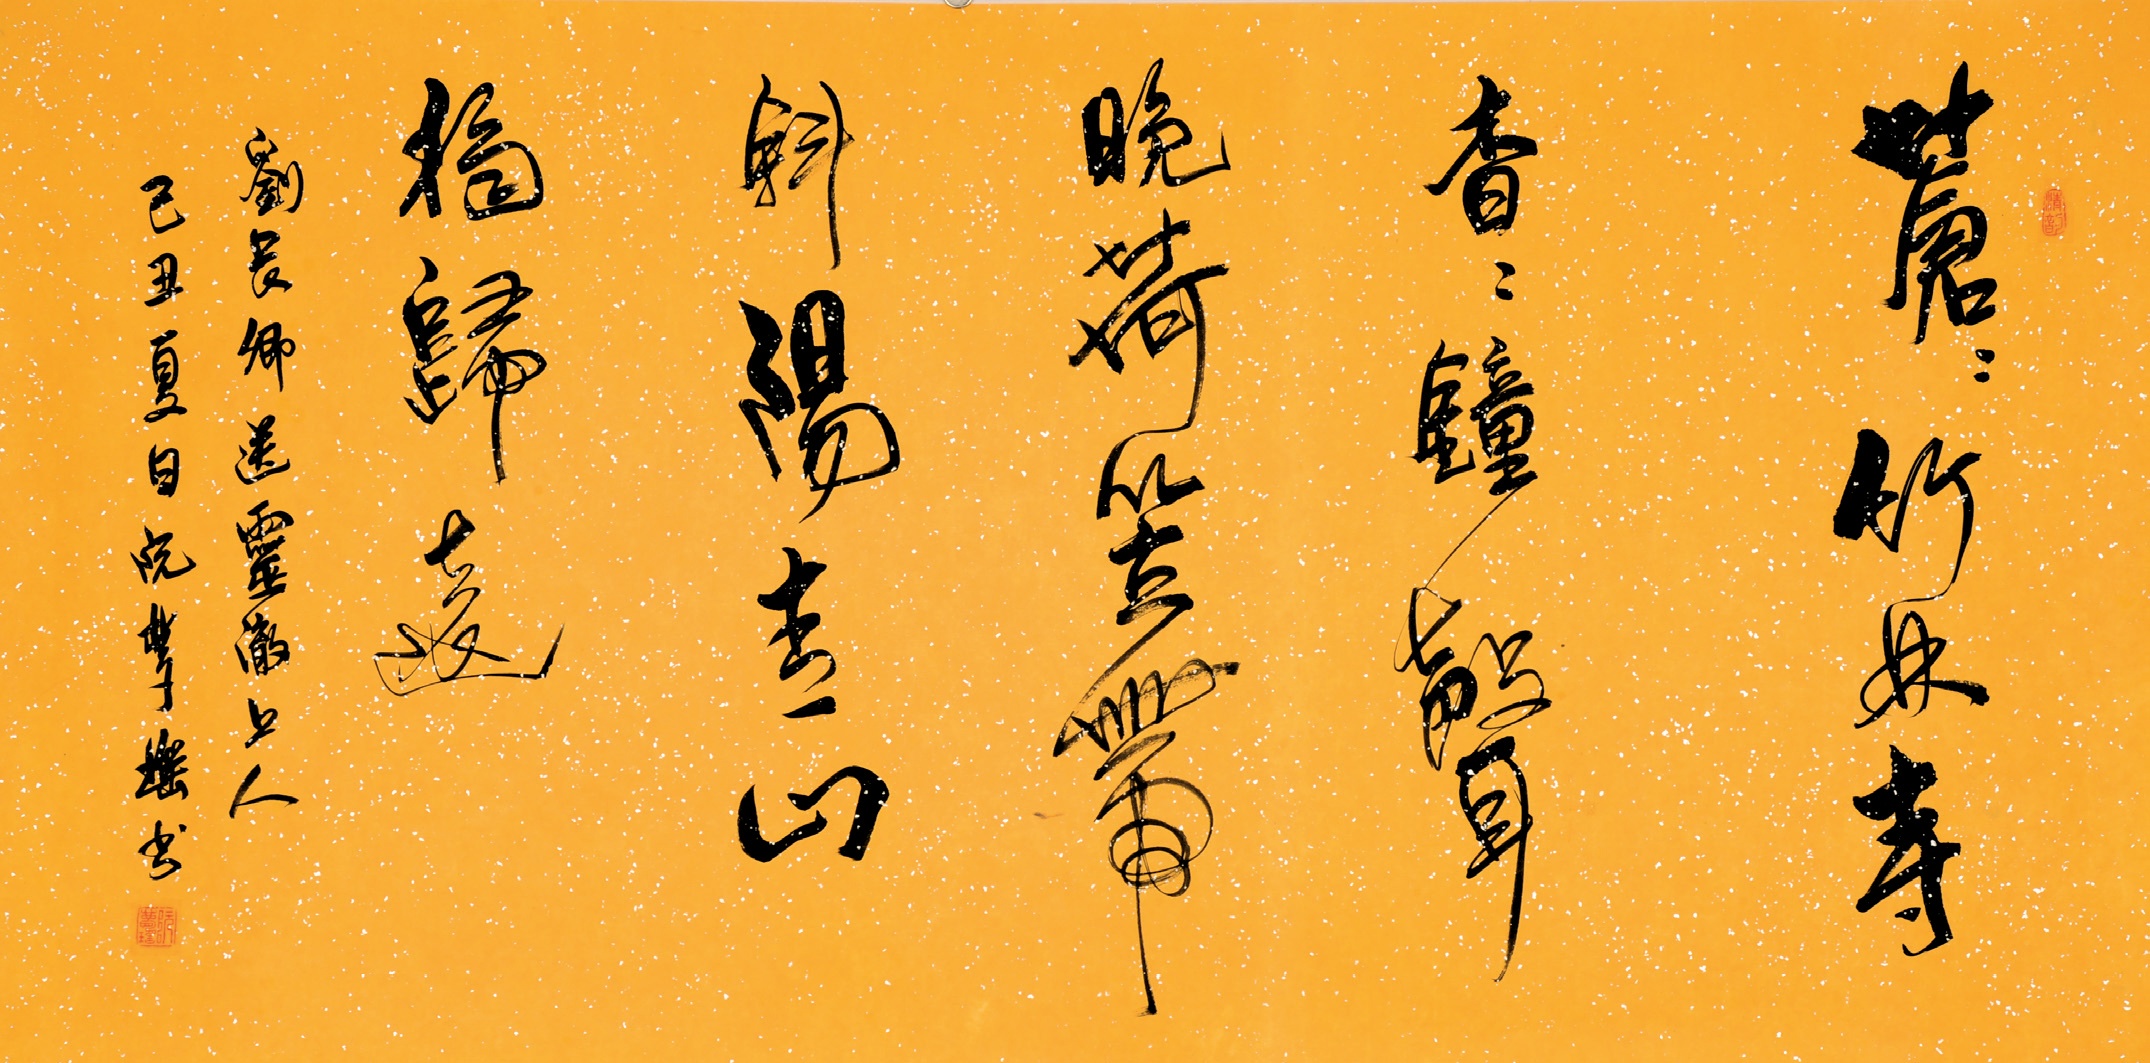 蒼〻竹林寺
杳〻鐘聲
晚荷笠帶
斜陽青山
獨歸遠
劉長卿送靈澈上人
己丑夏日阮書